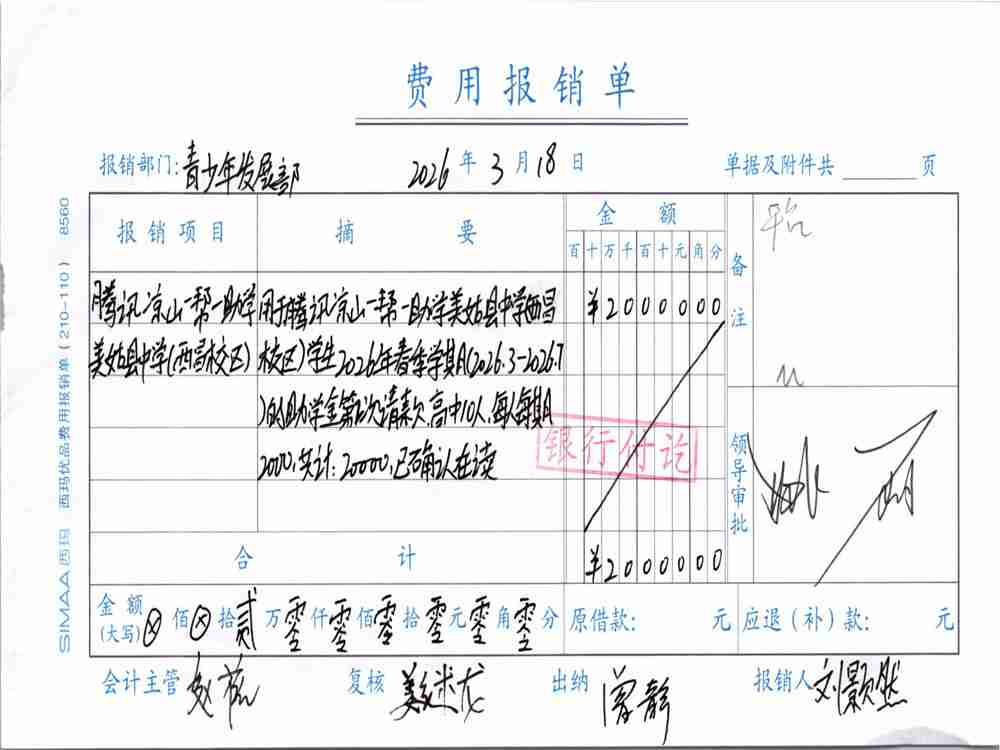 费用报销单
报销部门:青少年发展部 2026年3月18日 单据及附件共 页
报销项目 摘要 金额 备注
百十万千百十元角分
腾讯凉山一帮一助学 用于腾讯凉山一帮一助学美姑县中学(西昌 ¥2000000
美姑县中学(西昌校区) 校区)学生2026年春季学期(2026.3-2026.7
)的助学金第2次请款,高中10人,每人每期
2000,共计:20000,已确认在读
银行付讫
领导审批
合计 ¥2000000
金额(大写)⊗佰⊗拾贰万零仟零佰零拾零元零角零分 原借款: 元 应退(补)款: 元
会计主管 复核 出纳 曾静 报销人 刘颢然
SIMAA西玛 西玛优品费用报销单(210-110) 8560